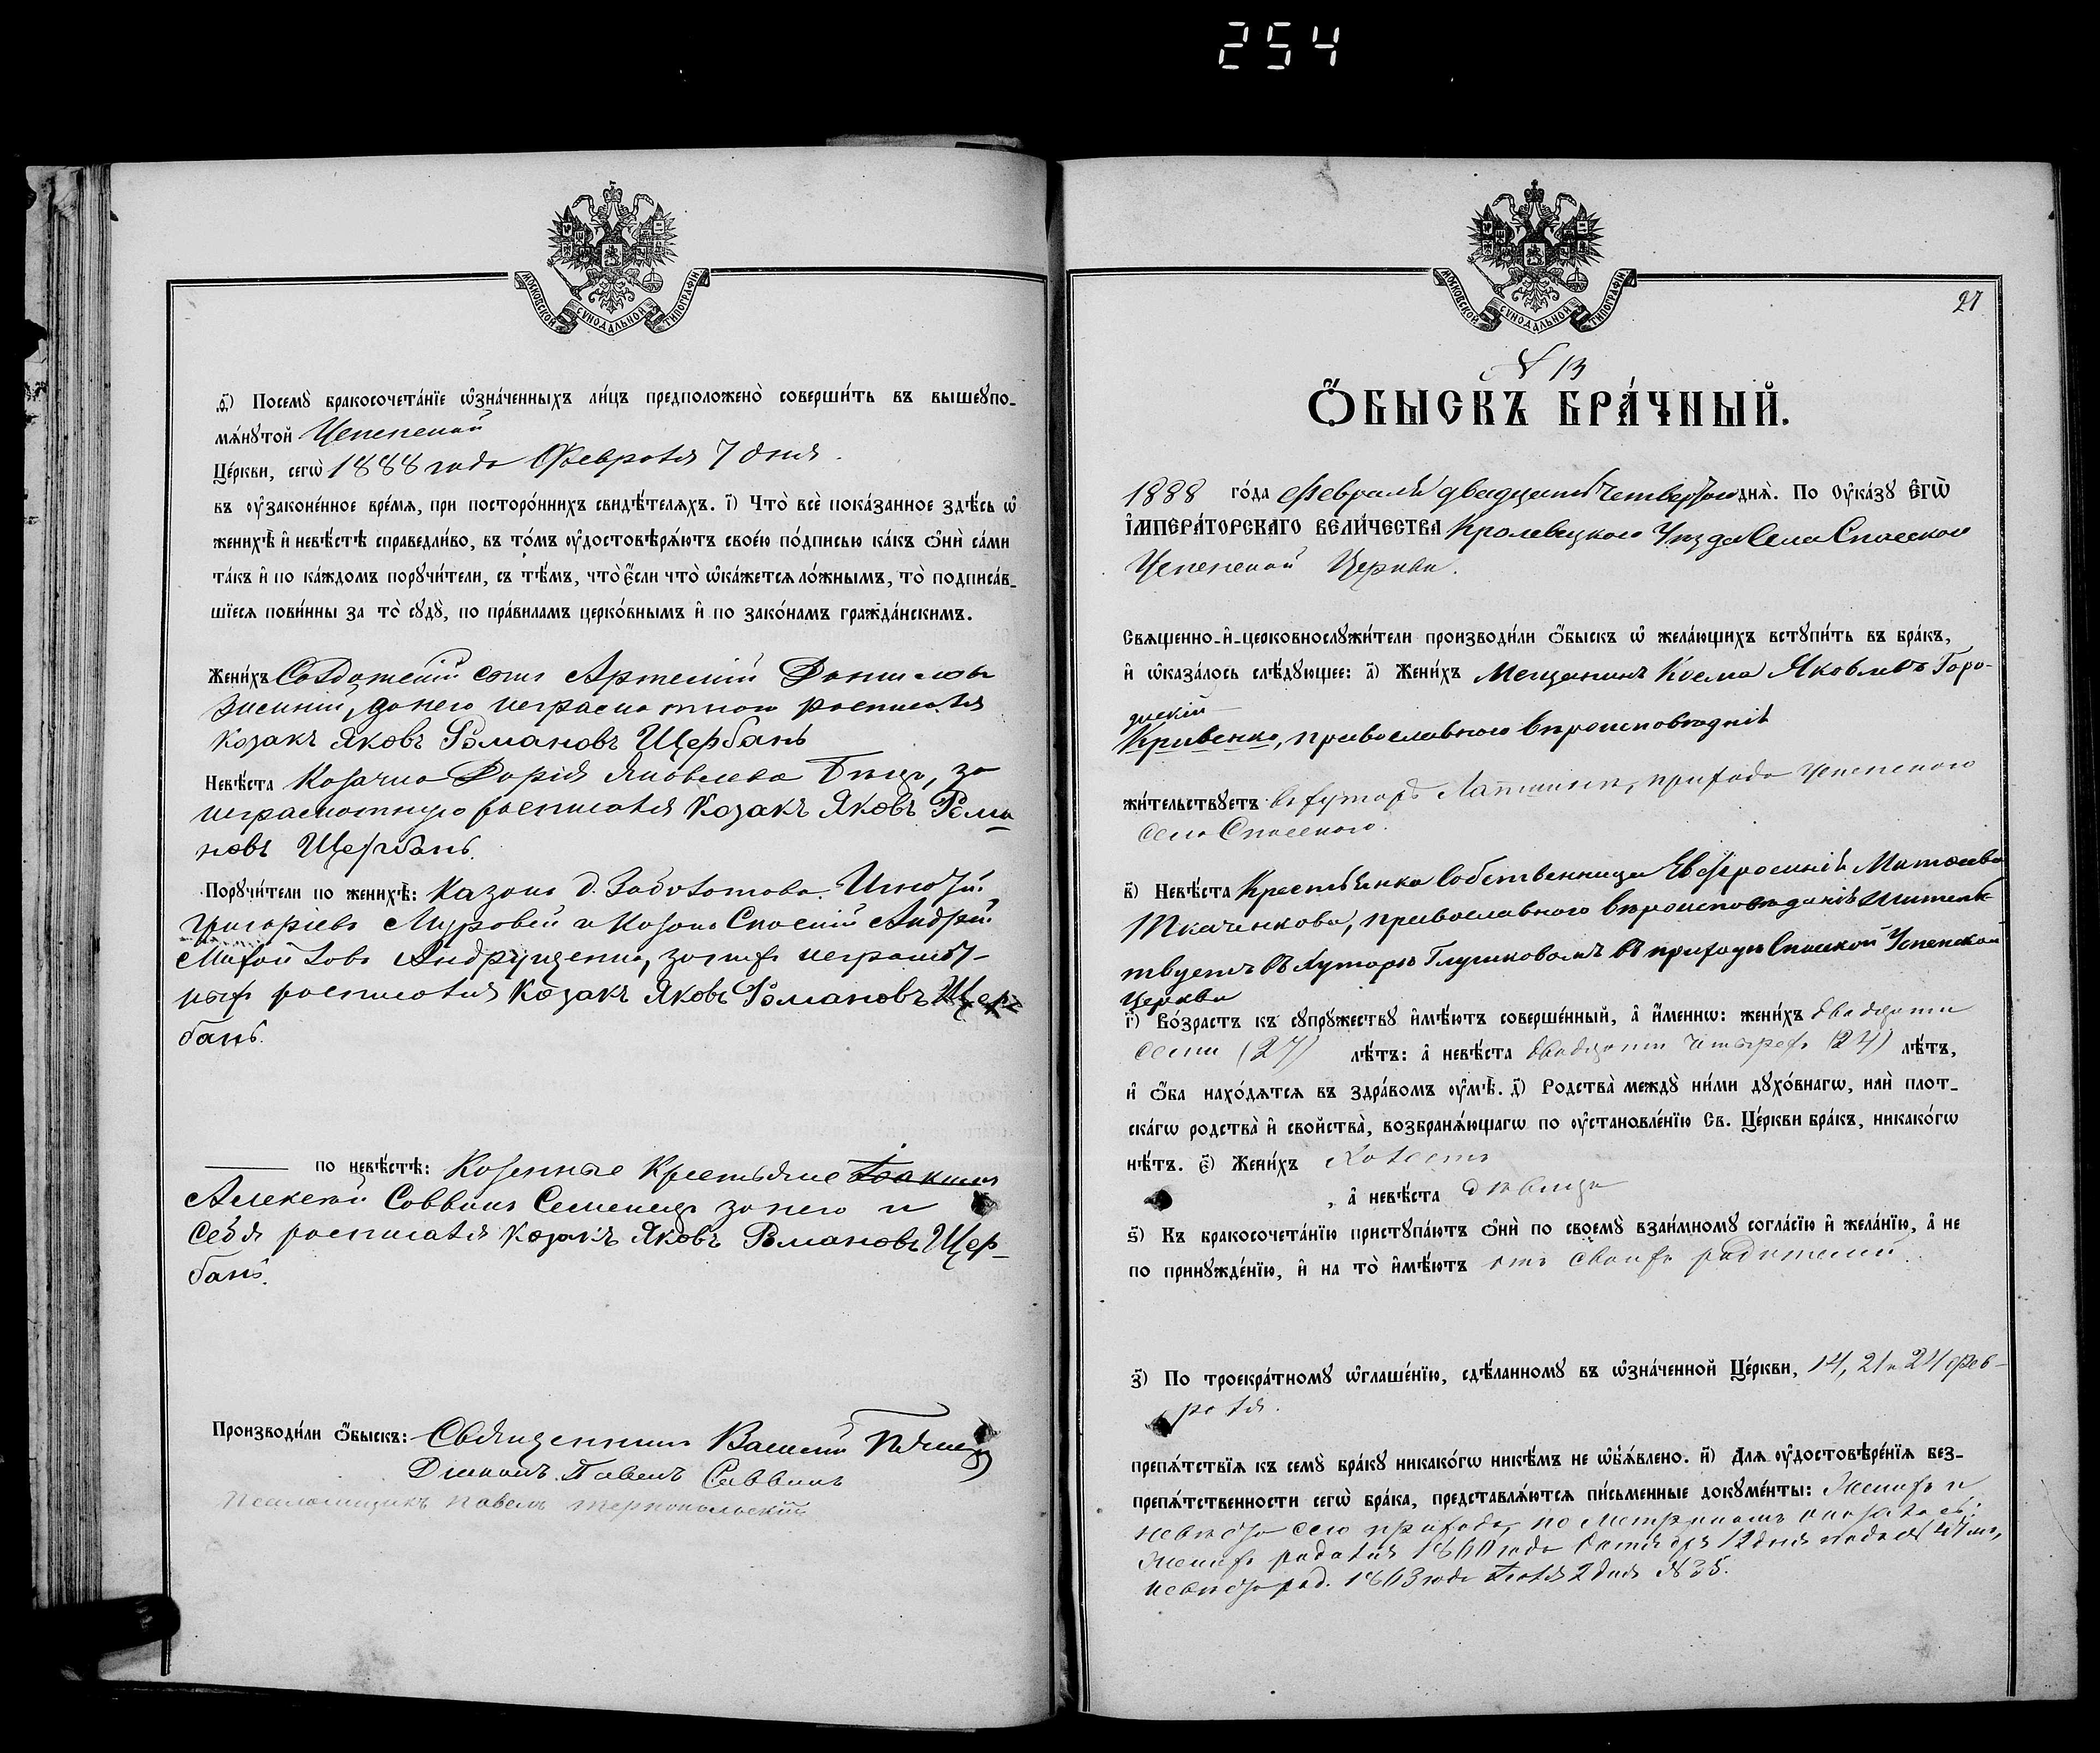 254
МОСКОВСКОЙ СѴНОДАЛЬНОЙ ТИПОГРАФІИ
д҃) Посемꙋ̀ бракосочета́нїе ѡ҆зна́ченныхъ ли́цъ предположено̀ соверши́ть въ вышеꙋпо-
мѧ́нꙋтой Успенской
Це́ркви, сегѡ̀ 1888 года Февраля 7 дня.
въ ᲂу҆законе́нное вре́мѧ, при посторо́ннихъ свидѣ́телѧхъ. і҃) Что̀ всѐ пока́занное здѣ́сь ѡ҆
женихѣ̀ и҆ невѣ́стѣ справедли́во, въ то́мъ ᲂу҆достовѣрѧ́ютъ свое́ю по́дписью ка́къ ѻ҆нѝ са́ми
та́къ и҆ по ка́ждомъ порꙋчи́тели, съ тѣ́мъ, что̀ є҆́сли что̀ ѡ҆ка́жетсѧ ло́жнымъ, то̀ подписа́в-
шїесѧ пови́нны за то̀ сꙋдꙋ̀, по пра́виламъ церко́внымъ и҆ по зако́намъ гражда́нскимъ.
Жени́хъ Солдатскій сынъ Артемій Данилов
за него неграмотного росписался
козакъ Яковъ Романовъ Щербань
Невѣ́ста Козачка Дарія Яковлева за
неграмотную росписался Козакъ Яковъ Рома
новъ Щербань.
Порꙋчи́тели по женихѣ̀:
Григоріевъ и Андрей
Андрущенко, за них неграмот-
ныхъ росписался Козакъ Яковъ Романовъ Щер-
бань.
по невѣ́стѣ: Казенные Крестьяне
Алексей Саввинъ Семенецъ за него и
себя росписался Козакъ Яковъ Романовъ Щер-
бань.
Производи́ли ѻ҆́быскъ: Священникъ Василій
Діаконъ Павелъ Саввичъ
Псаломщикъ Павелъ Тернопольскій
МОСКОВСКОЙ СѴНОДАЛЬНОЙ ТИПОГРАФІИ
27
N 13
Ѻ҆́БЫСКЪ БРА́ЧНЫЙ.
1888 го́да Февраля двадцать четвертого днѧ̀. По ᲂу҆ка́зꙋ є҆гѡ̀
и҆мпера́торскагѡ вели́чества Кролевецкого Уезда Села Спасского
Успенской Церкви.
Свѧщенно-и҆-церковнослꙋжи́тели производи́ли ѻ҆́быскъ ѡ҆ жела́ющихъ встꙋпи́ть въ бра́къ,
и҆ ѡ҆каза́лось слѣ́дꙋющее: а҃) Жени́хъ Мещанинъ Косма Яковлевъ Горо-
дискій
Кривенко, православного вѣроисповѣданія
жи́тельствꙋетъ въ хуторѣ прихода Успенского
села Спасского.
в҃) Невѣ́ста Крестьянка Собственница Евфросинія Матѳеева
Ткаченкова, православного вѣроисповѣданія жительс-
твуетъ въ Хуторѣ Глушковомъ въ приходѣ Спаской Успенской
Церкви
г҃) Во́зрастъ къ сꙋпрꙋ́жествꙋ и҆мѣ́ютъ соверше́нный, а҆ и҆́меннѡ: жени́хъ двадцати
семи (27) лѣ́тъ: а҆ невѣ́ста двадцати четырехъ (24) лѣ́тъ,
и҆ ѻ҆́ба нахо́дѧтсѧ въ здра́вомъ ᲂу҆мѣ̀. д҃) Родства̀ междꙋ̀ ни́ми дꙋхо́внагѡ, илѝ плот-
ска́гѡ родства̀ и҆ свойства̀, возбранѧ́ющагѡ по ᲂу҆становле́нїю Св. Це́ркви бра́къ, никако́гѡ
нѣ́тъ. є҃) Жени́хъ Холостъ
, а҆ невѣ́ста дѣвица
ѕ҃) Къ бракосочета́нїю пристꙋпа́ютъ ѻ҆нѝ по своемꙋ̀ взаи́мномꙋ согла́сїю и҆ жела́нїю, а҆ не
по принꙋжде́нїю, и҆ на то̀ и҆мѣ́ютъ отъ своихъ родителей
з҃) По троекра́тномꙋ ѡ҆глаше́нїю, сдѣ́ланномꙋ въ ѡ҆зна́ченной Це́ркви, 14, 21 и 24 фев-
раля.
препѧ́тствїѧ къ семꙋ̀ бра́кꙋ никако́гѡ никѣ́мъ не ѡ҆б̾ѧ́влено. и҃) Длѧ ᲂу҆достовѣре́нїѧ без-
препѧ́тственности сегѡ̀ бра́ка, представлѧ́ютсѧ пи́сьменные докꙋме́нты: Жених и
невѣста сего прихода, по Метрикамъ оказалось:
Жених родился 1860 года Октября 12 дня подъ № 47 м,
невѣста род. 1863 года Іюля 2 дня № 35.